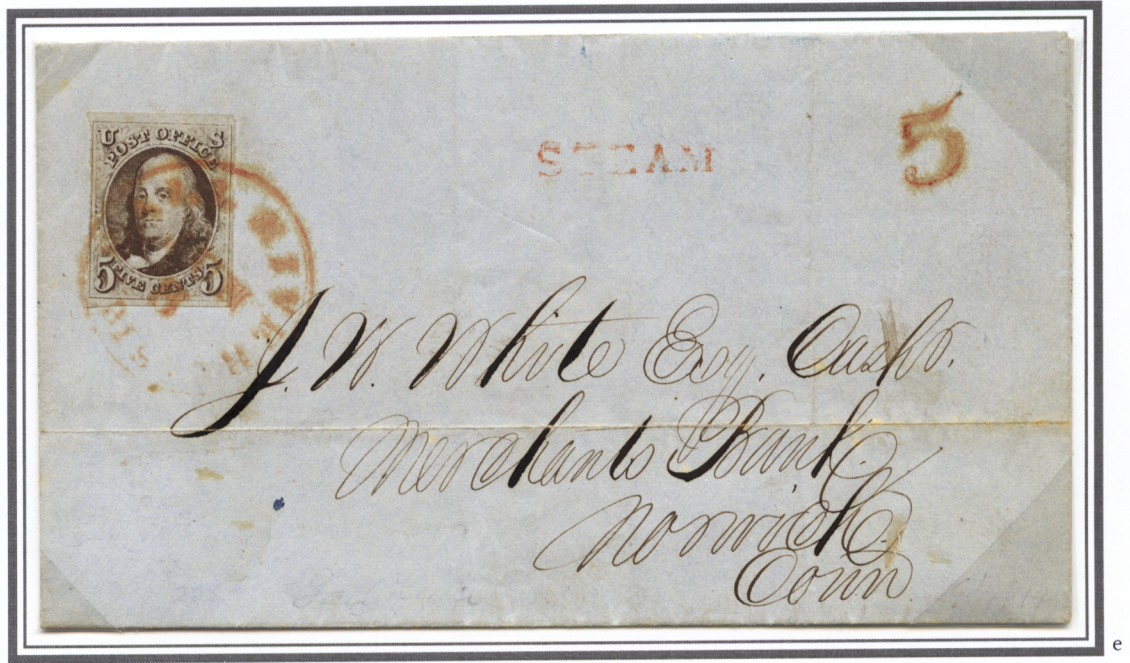 U S
POST OFFICE
5 FIVE CENTS 5
STEAM
5
J. W. White Esq. Cashr.
Merchants Bank
Norwich
Conn
e